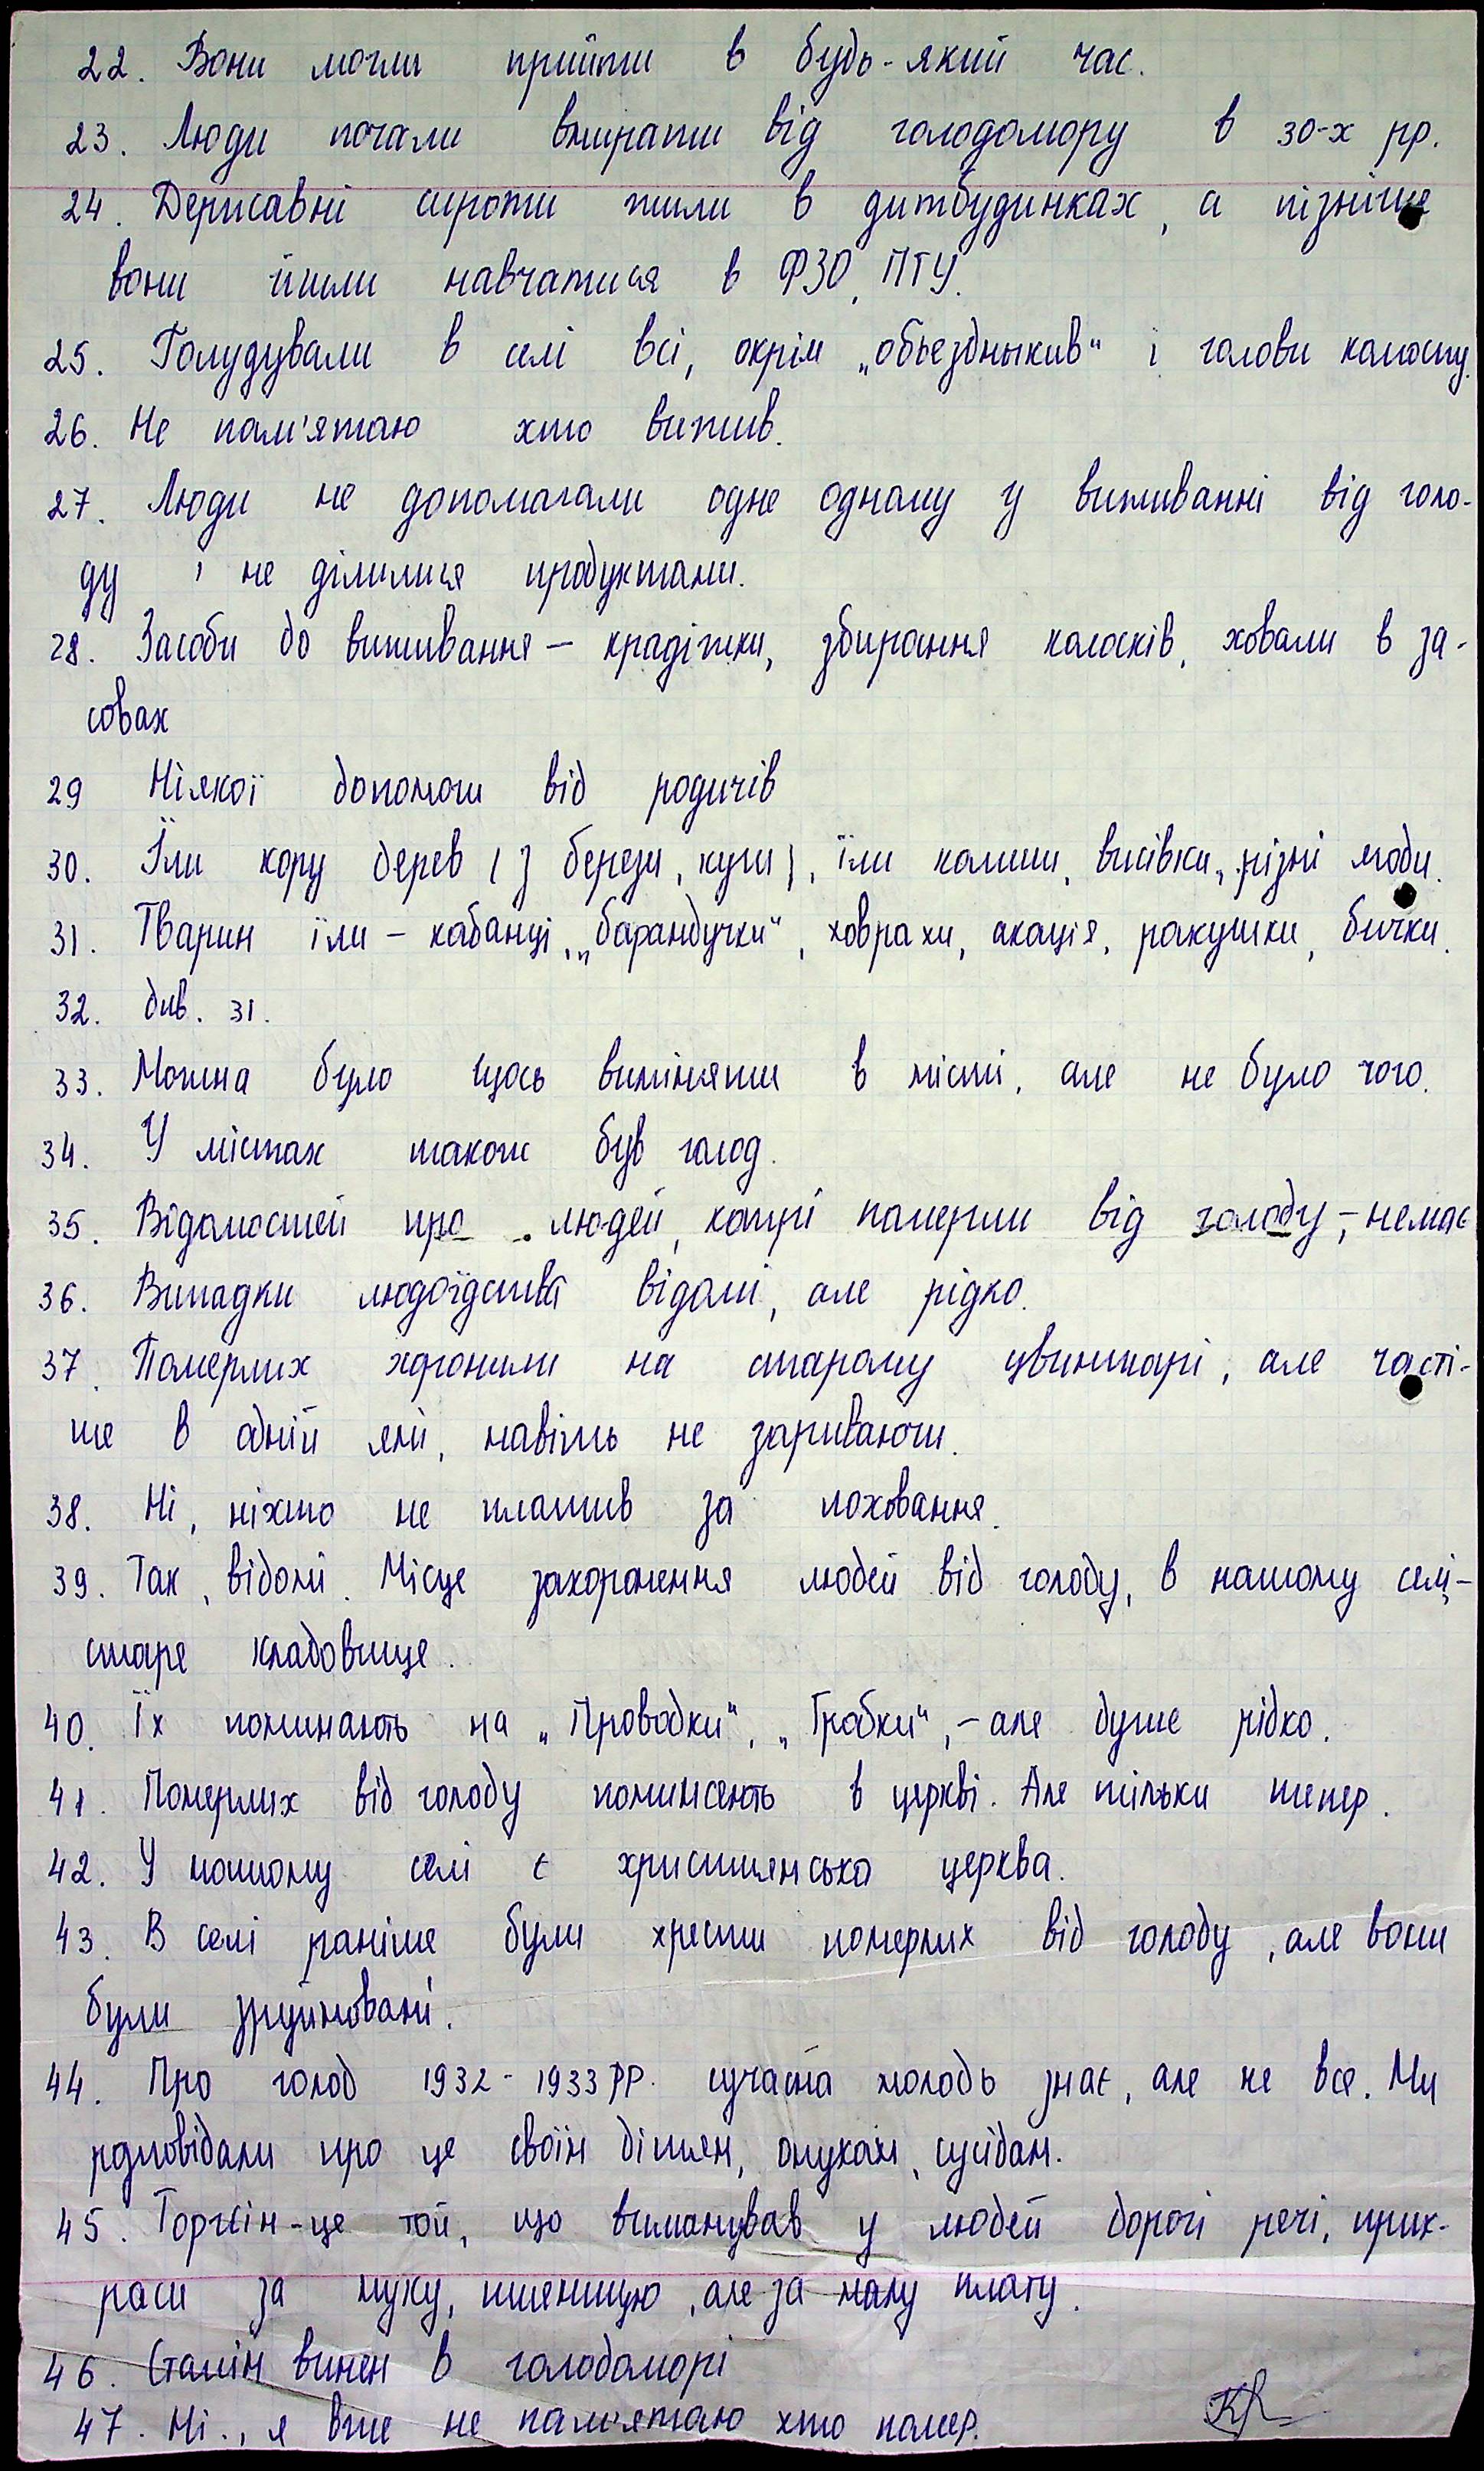 22. Вони могли прийти в будь-який час.
23. Люди почали вмирати від голодомору в 30-х рр.
24. Державні сироти жили в дитбудинках, а пізніше
вони йшли навчатися в ФЗО, ПТУ.
25. Голудували в селі всі, окрім „обьездныкив" і голови колоспу.
26. Не пам'ятаю хто вижив.
27. Люди не допомагали одне одному у виживанні від голо-
ду і не ділилися продуктами.
28. Засоби до виживання – крадіжки, збирання колосків, ховали в за-
совах
29 Ніякої допомоги від родичів
30. Їли кору дерев (з берези, куги), їли калиш, висівки, різні ягоди.
31. Тварин їли – кабанці, „барандучки", ховрахи, акація, ракушки, бички.
32. див. 31.
33. Можна було щось виміняти в місті, але не було чого.
34. У містах також був голод.
35. Відомостей про людей, котрі померли від голоду, – немає
36. Випадки людоїдства відомі, але рідко.
37. Померлих хоронили на старому цвинтарі, але часті-
ше в одній ямі, навіть не зариваючи.
38. Ні, ніхто не платив за поховання.
39. Так, відомі. Місце захоронення людей від голоду, в нашому селі –
старе кладовище.
40. Їх поминають на „Проводки", „Гробки", – але дуже рідко.
41. Померлих від голоду поминають в церкві. Але тільки тепер.
42. У нашому селі є християнська церква.
43. В селі раніше були хрести померлих від голоду, але вони
були зруйновані.
44. Про голод 1932 - 1933 рр. сучасна молодь знає, але не все. Ми
розповідали про це своїм дітям, онукам, сусідам.
45. Торгсін – це той, що виманував у людей дорогі речі, прик-
раси за муку, пшеницю, але за малу плату.
46. Сталін винен в голодоморі
47. Ні, я вже не пам'ятаю хто помер.